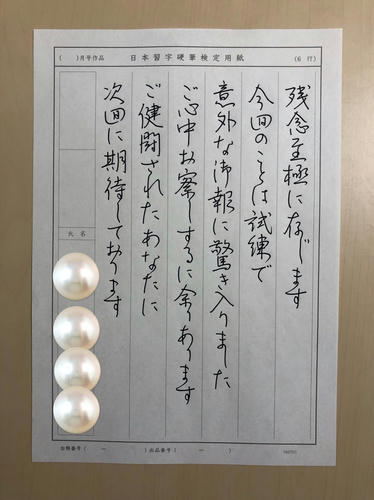 ( )月号作品 日本習字硬筆検定用紙 (6 行)
残念至極に存じます
今回のことは試練で
意外な御報に驚き入りました
ご心中お察しするに余りあります
ご健闘されたあなたに
次回に期待しております
氏名
出品番号( ー )